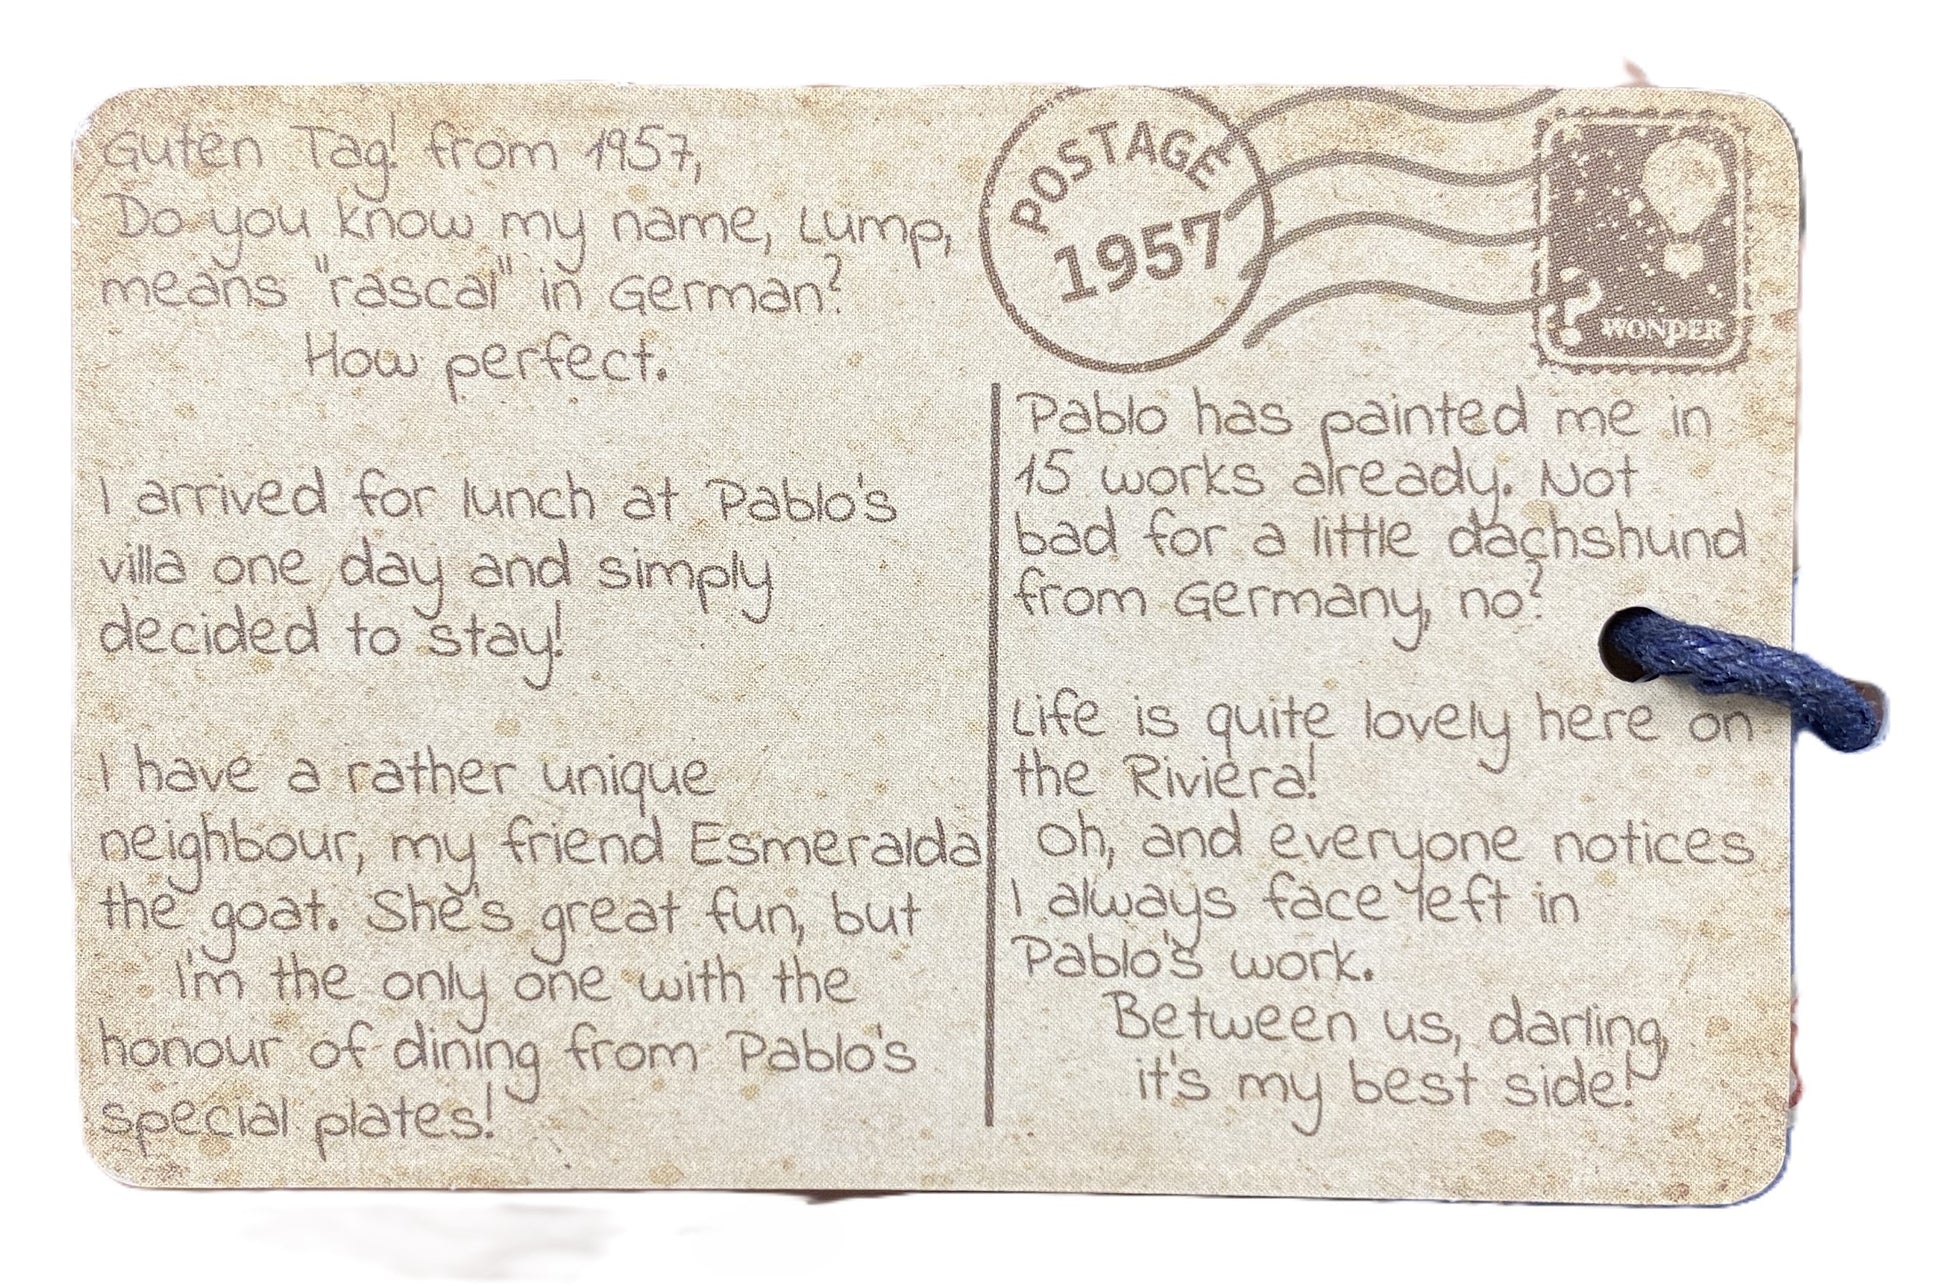 Guten Tag! from 1957,
Do you know my name, Lump,
means "rascal" in German?
How perfect.
I arrived for lunch at Pablo's
villa one day and simply
decided to stay!
I have a rather unique
neighbour, my friend Esmeralda
the goat. She's great fun, but
I'm the only one with the
honour of dining from Pablo's
special plates!
POSTAGE
1957
WONDER
Pablo has painted me in
15 works already. Not
bad for a little dachshund
from Germany, no?
Life is quite lovely here on
the Riviera!
Oh, and everyone notices
I always face left in
Pablo's work.
Between us, darling,
it's my best side!